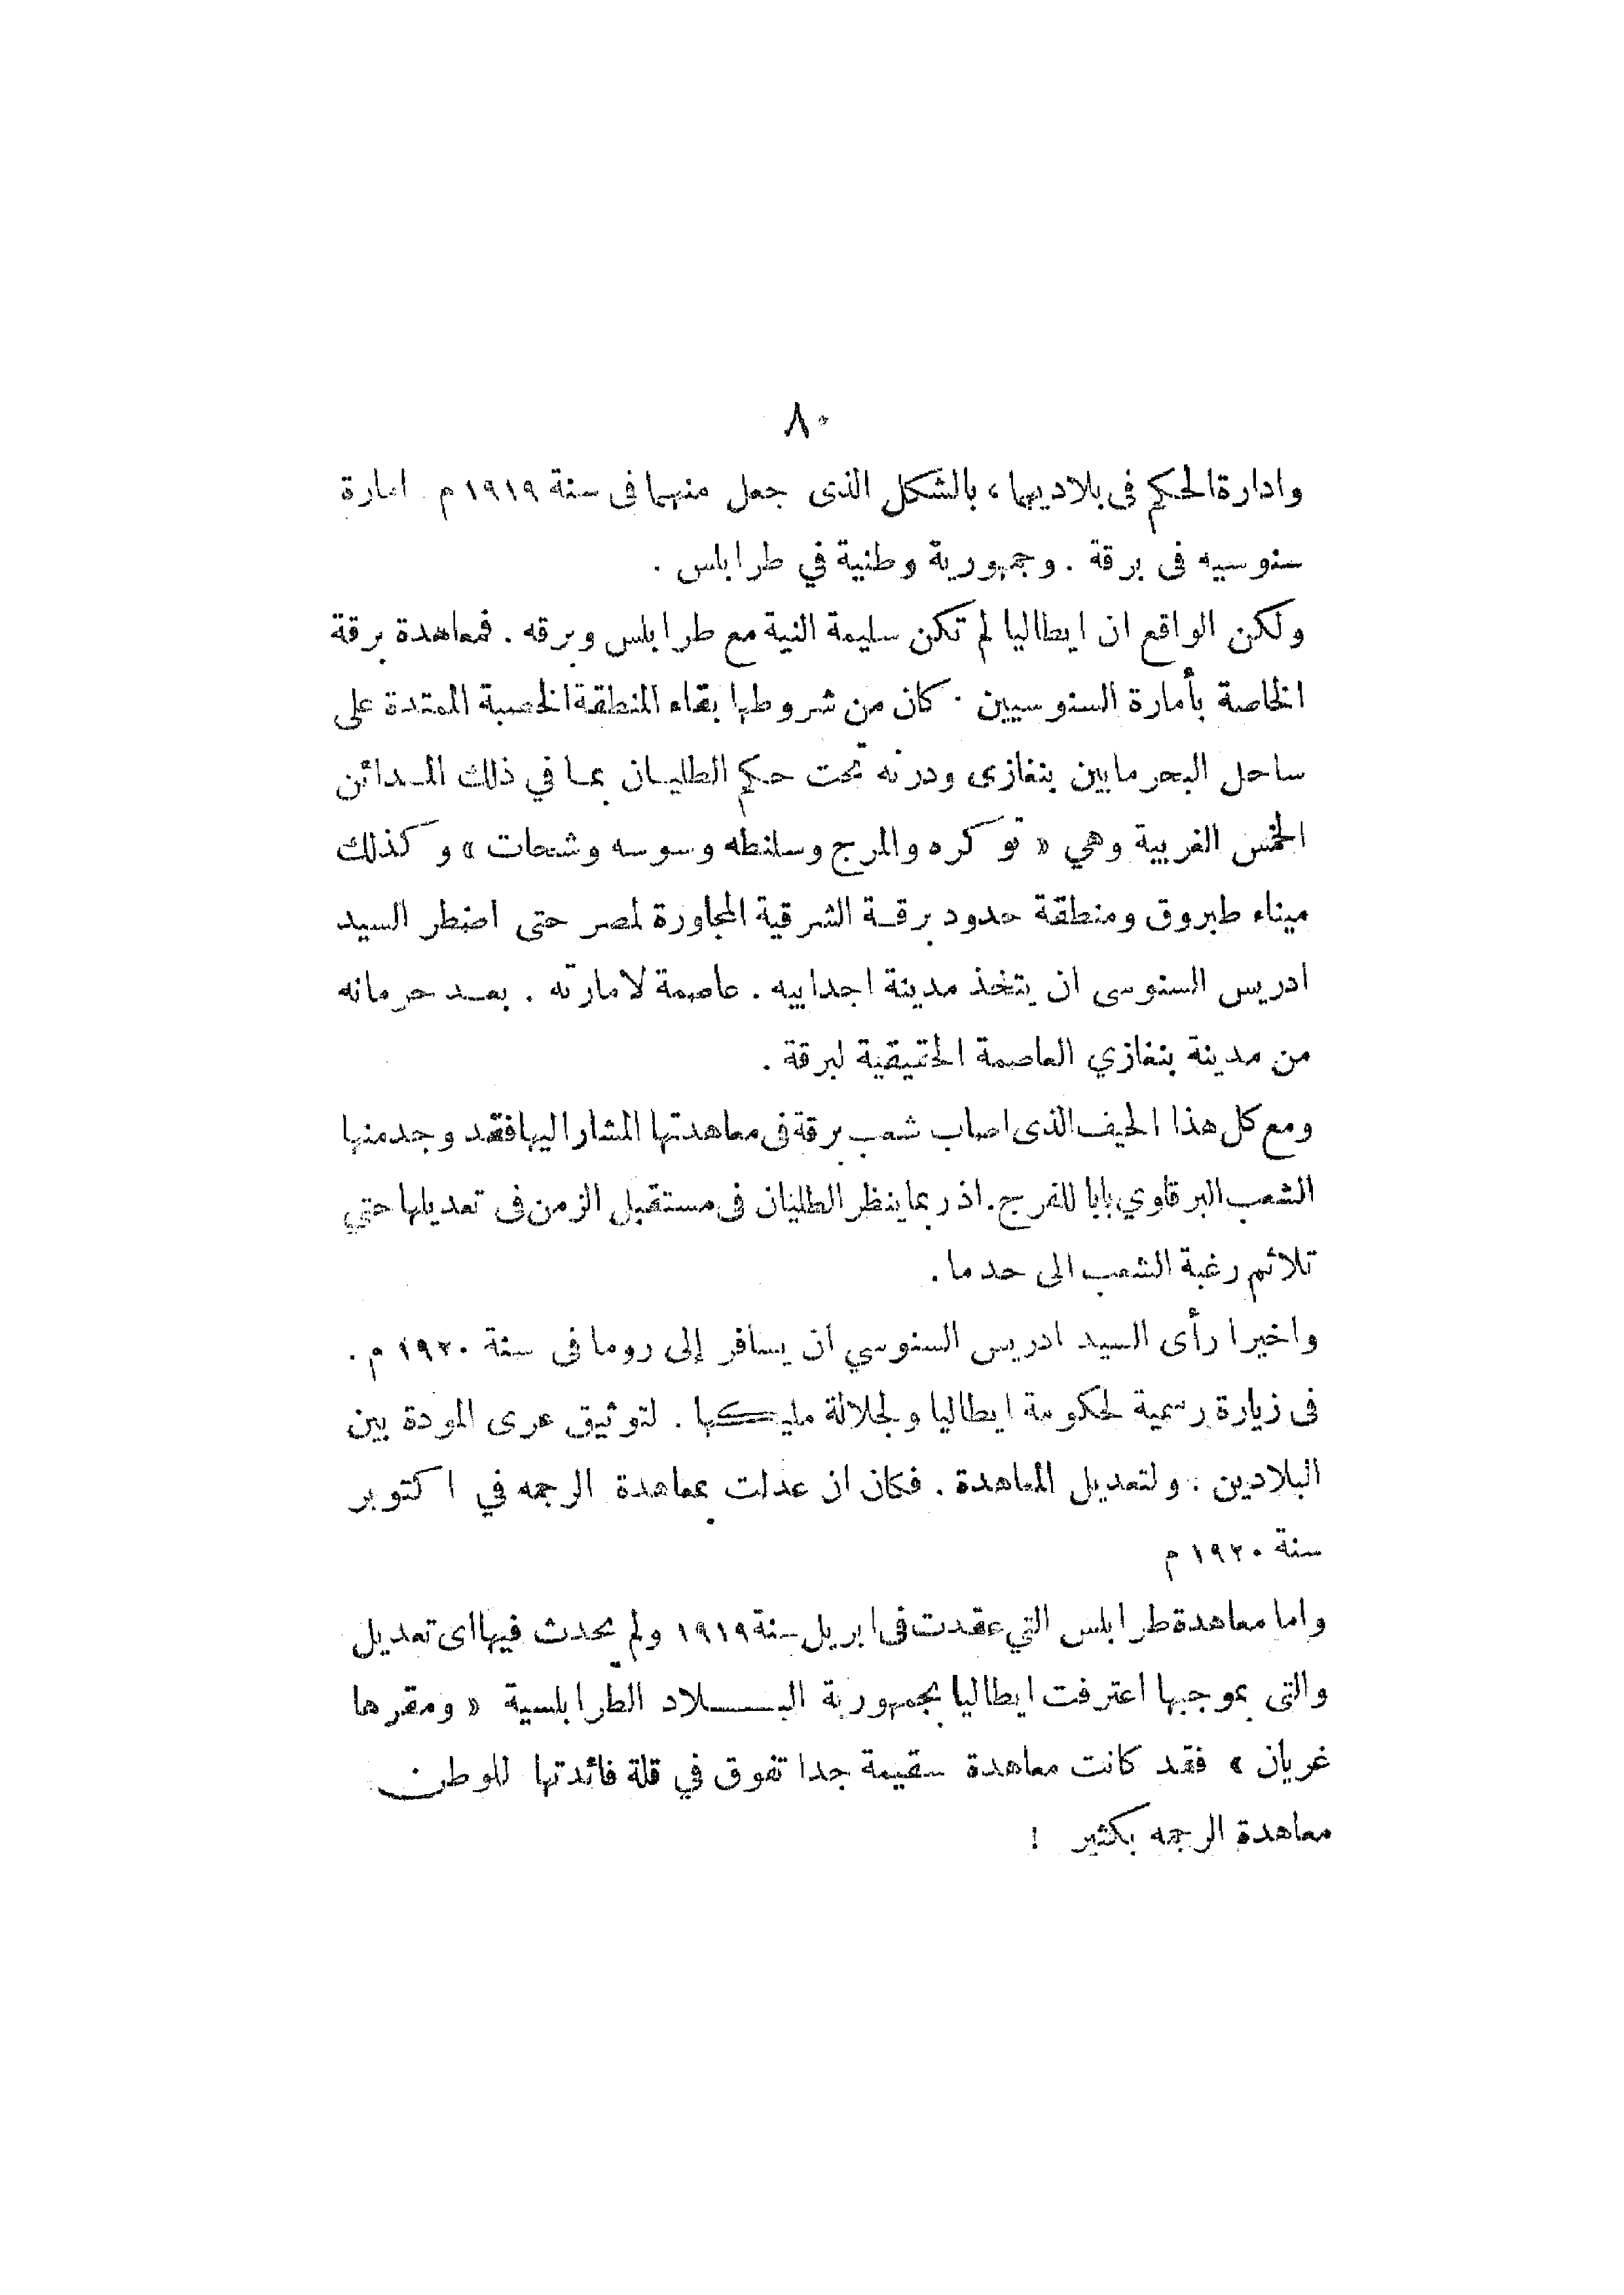 ٨٠
وادارة الحكم فى بلاديهما ، بالشكل الذى جعل منهما فى سنة ١٩١٩ م . امارة
سنوسيه فى برقة . وجمهورية وطنية في طرابلس .
ولكن الواقع ان ايطاليا لم تكن سليمة النية مع طرابلس وبرقه . فمعاهدة برقة
الخاصة بأمارة السنوسيين . كان من شروطها بقاء المنطقة الخصبة الممتدة على
ساحل البحر مابين بنغازى ودرنه تحت حكم الطليـان بمـا في ذلك المـدائن
الخمس الغربية وهي « توكره والمرج وسلنطه وسوسه وشحات » وكذلك
ميناء طبروق ومنطقة حدود برقـة الشرقية المجاورة لمصر حتى اضطر السيد
ادريس السنوسى ان يتخذ مدينة اجدابيه . عاصمة لامارته . بعـد حرمانه
من مدينة بنغازي العاصمة الحقيقية لبرقة .
ومع كل هذا الحيف الذى اصاب شعب برقة فى معاهدتها المشار اليها فقد وجد منها
الشعب البرقاوي بابا للفرج . اذ ربما ينظر الطليان فى مستقبل الزمن فى تعديلها حتي
تلائم رغبة الشعب الى حد ما .
واخيرا رأى السيد ادريس السنوسي ان يسافر إلى روما فى سنة ١٩٢٠ م .
فى زيارة رسمية لحكومة ايطاليا ولجلالة مليكها . لتوثيق عرى المودة بين
البلادين . ولتعديل المعاهدة . فكان ان عدلت بمعاهدة الرجمه في اكتوبر
سنة ١٩٢٠ م
واما معاهدة طرابلس التي عقدت فى ابريل سنة ١٩١٩ ولم يحدث فيها اى تعديل
والتى بموجبها اعترفت ايطاليا بجمهورية البـــلاد الطرابلسية « ومقرها
غريان » فقد كانت معاهدة سقيمة جدا تفوق في قلة فائدتها للوطن
معاهدة الرجمه بكثير !